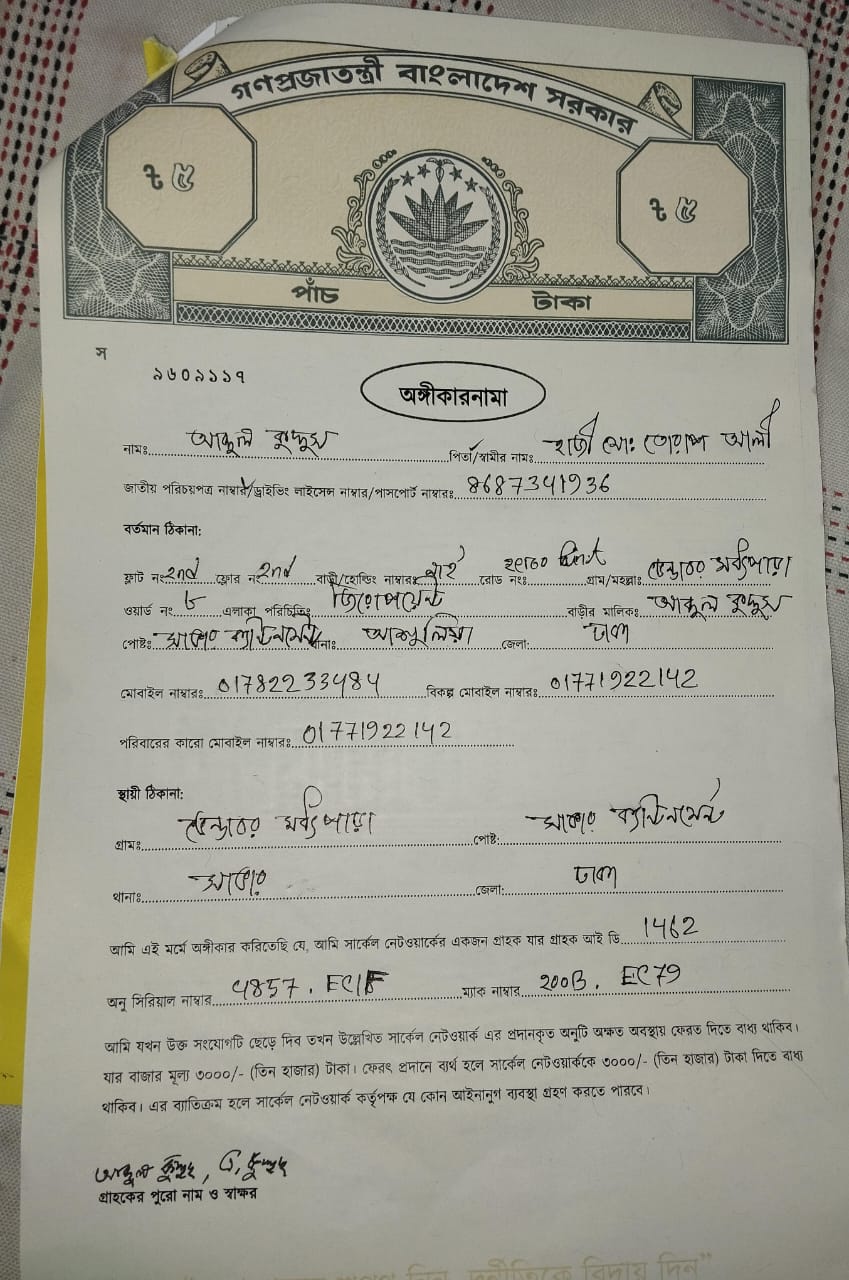 গণপ্রজাতন্ত্রী বাংলাদেশ সরকার
৳ ৫ ৳ ৫
পাঁচ টাকা
স
৯৬০৯১১৭
অঙ্গীকারনামা
নামঃ আব্দুল কুদ্দুস পিতা/স্বামীর নামঃ হাজী মোঃ তোরাপ আলী
জাতীয় পরিচয়পত্র নাম্বার/ড্রাইভিং লাইসেন্স নাম্বার/পাসপোর্ট নাম্বারঃ 8687341936
বর্তমান ঠিকানা:
ফ্লাট নং 2nd ফ্লোর নং 2nd বাড়ী/হোল্ডিং নাম্বারঃ নাই রোড নংঃ গ্রাম/মহল্লাঃ
ওয়ার্ড নং ৮ এলাকা পরিচিতিঃ জিরোপয়েন্ট বাড়ীর মালিকঃ আব্দুল কুদ্দুস
পোষ্টঃ সাভার ক্যান্টিনমেন্ট থানাঃ আশুলিয়া জেলা: ঢাকা
মোবাইল নাম্বারঃ 01782233484 বিকল্প মোবাইল নাম্বারঃ 01771922142
পরিবারের কারো মোবাইল নাম্বারঃ 01771922142
স্থায়ী ঠিকানা:
গ্রামঃ পোষ্ট: সাভার ক্যান্টিনমেন্ট
থানাঃ সাভার জেলা: ঢাকা
আমি এই মর্মে অঙ্গীকার করিতেছি যে, আমি সার্কেল নেটওয়ার্কের একজন গ্রাহক যার গ্রাহক আই ডি 1462
অনু সিরিয়াল নাম্বার 4857. EC1F ম্যাক নাম্বার 200B. EC79
আমি যখন উক্ত সংযোগটি ছেড়ে দিব তখন উল্লেখিত সার্কেল নেটওয়ার্ক এর প্রদানকৃত অনুটি অক্ষত অবস্থায় ফেরত দিতে বাধ্য থাকিব।
যার বাজার মূল্য ৩০০০/- (তিন হাজার) টাকা। ফেরৎ প্রদানে ব্যর্থ হলে সার্কেল নেটওয়ার্ককে ৩০০০/- (তিন হাজার) টাকা দিতে বাধ্য
থাকিব। এর ব্যতিক্রম হলে সার্কেল নেটওয়ার্ক কর্তৃপক্ষ যে কোন আইনানুগ ব্যবস্থা গ্রহণ করতে পারবে।
আব্দুল কুদ্দুছ,
গ্রাহকের পুরো নাম ও স্বাক্ষর
বিদায় দিন"